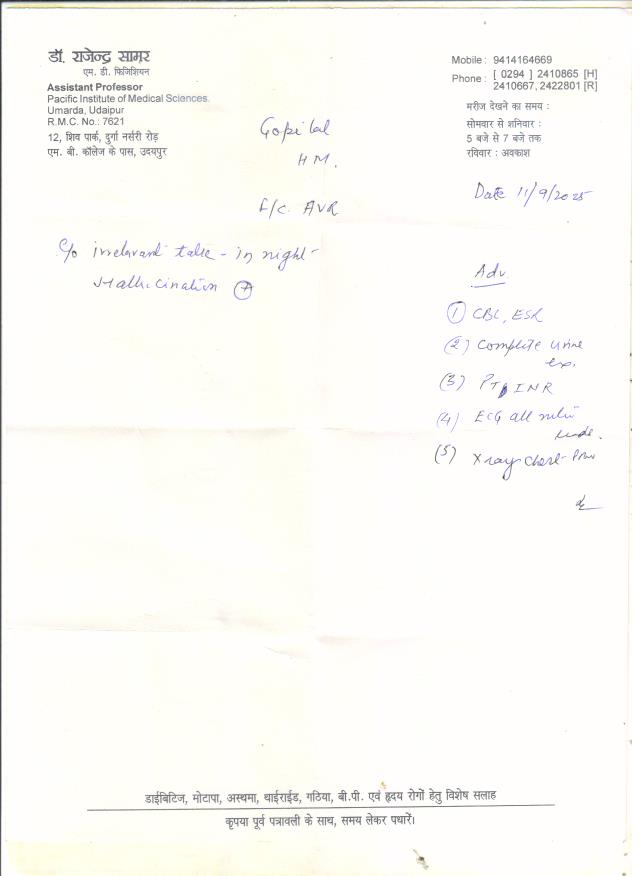 डॉ. राजेन्द्र सामर
एम. डी. फिजिशियन
Assistant Professor
Pacific Institute of Medical Sciences.
Umarda, Udaipur
R.M.C. No.: 7621
12, शिव पार्क, दुर्गा नर्सरी रोड़
एम. बी. कॉलेज के पास, उदयपुर
Mobile : 9414164669
Phone : [ 0294 ] 2410865 [H]
2410667, 2422801 [R]
मरीज देखने का समय :
सोमवार से शनिवार :
5 बजे से 7 बजे तक
रविवार : अवकाश
HM.
Date 11/9/2025
F/C. AVR
C/o irrelevant talk - in night -
Hallucination
Adv
(1) CBC, ESR
(2) Complete urine
ex.
(3) PT, INR
(4) ECG all
(5) X ray chest
डाईबिटिज, मोटापा, अस्थमा, थाईराईड, गठिया, बी.पी. एवं हृदय रोगों हेतु विशेष सलाह
कृपया पूर्व पत्रावली के साथ, समय लेकर पधारें।